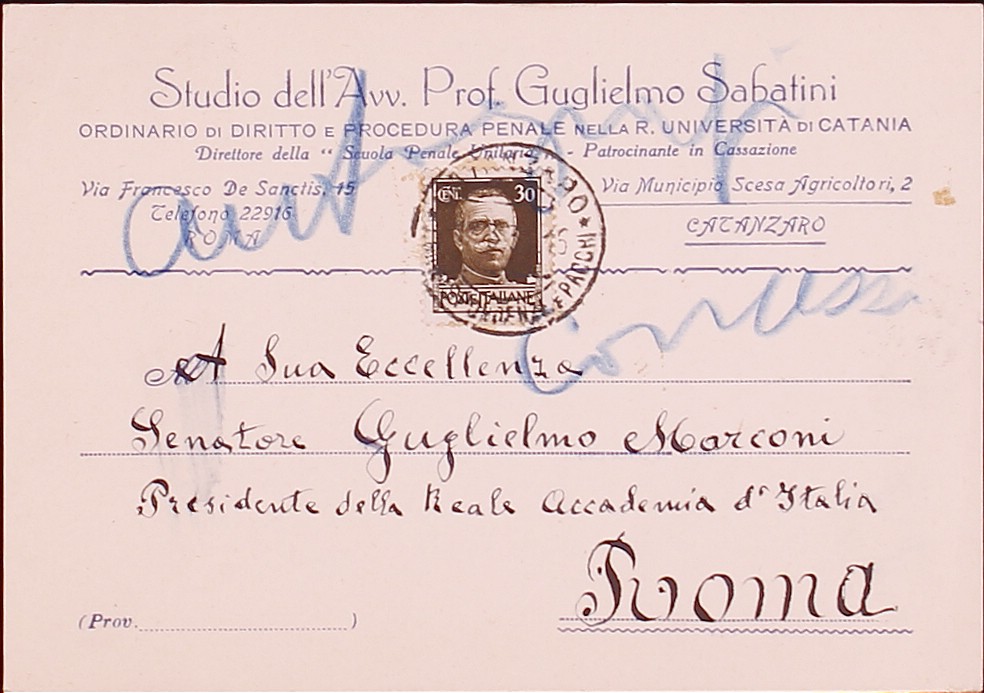 Studio dell'Avv. Prof. Guglielmo Sabatini
ORDINARIO DI DIRITTO E PROCEDURA PENALE NELLA R. UNIVERSITÀ DI CATANIA
Direttore della “ Scuola Penale Unitaria „ - Patrocinante in Cassazione
Via Francesco De Sanctis, 15
Telefono 22916
ROMA
Via Municipio Scesa Agricoltori, 2
CATANZARO
CENT. 30
POSTE ITALIANE
E PACCHI
A Sua Eccellenza
Senatore Guglielmo Marconi
Presidente della Reale Accademia d'Italia
Roma
(Prov. )